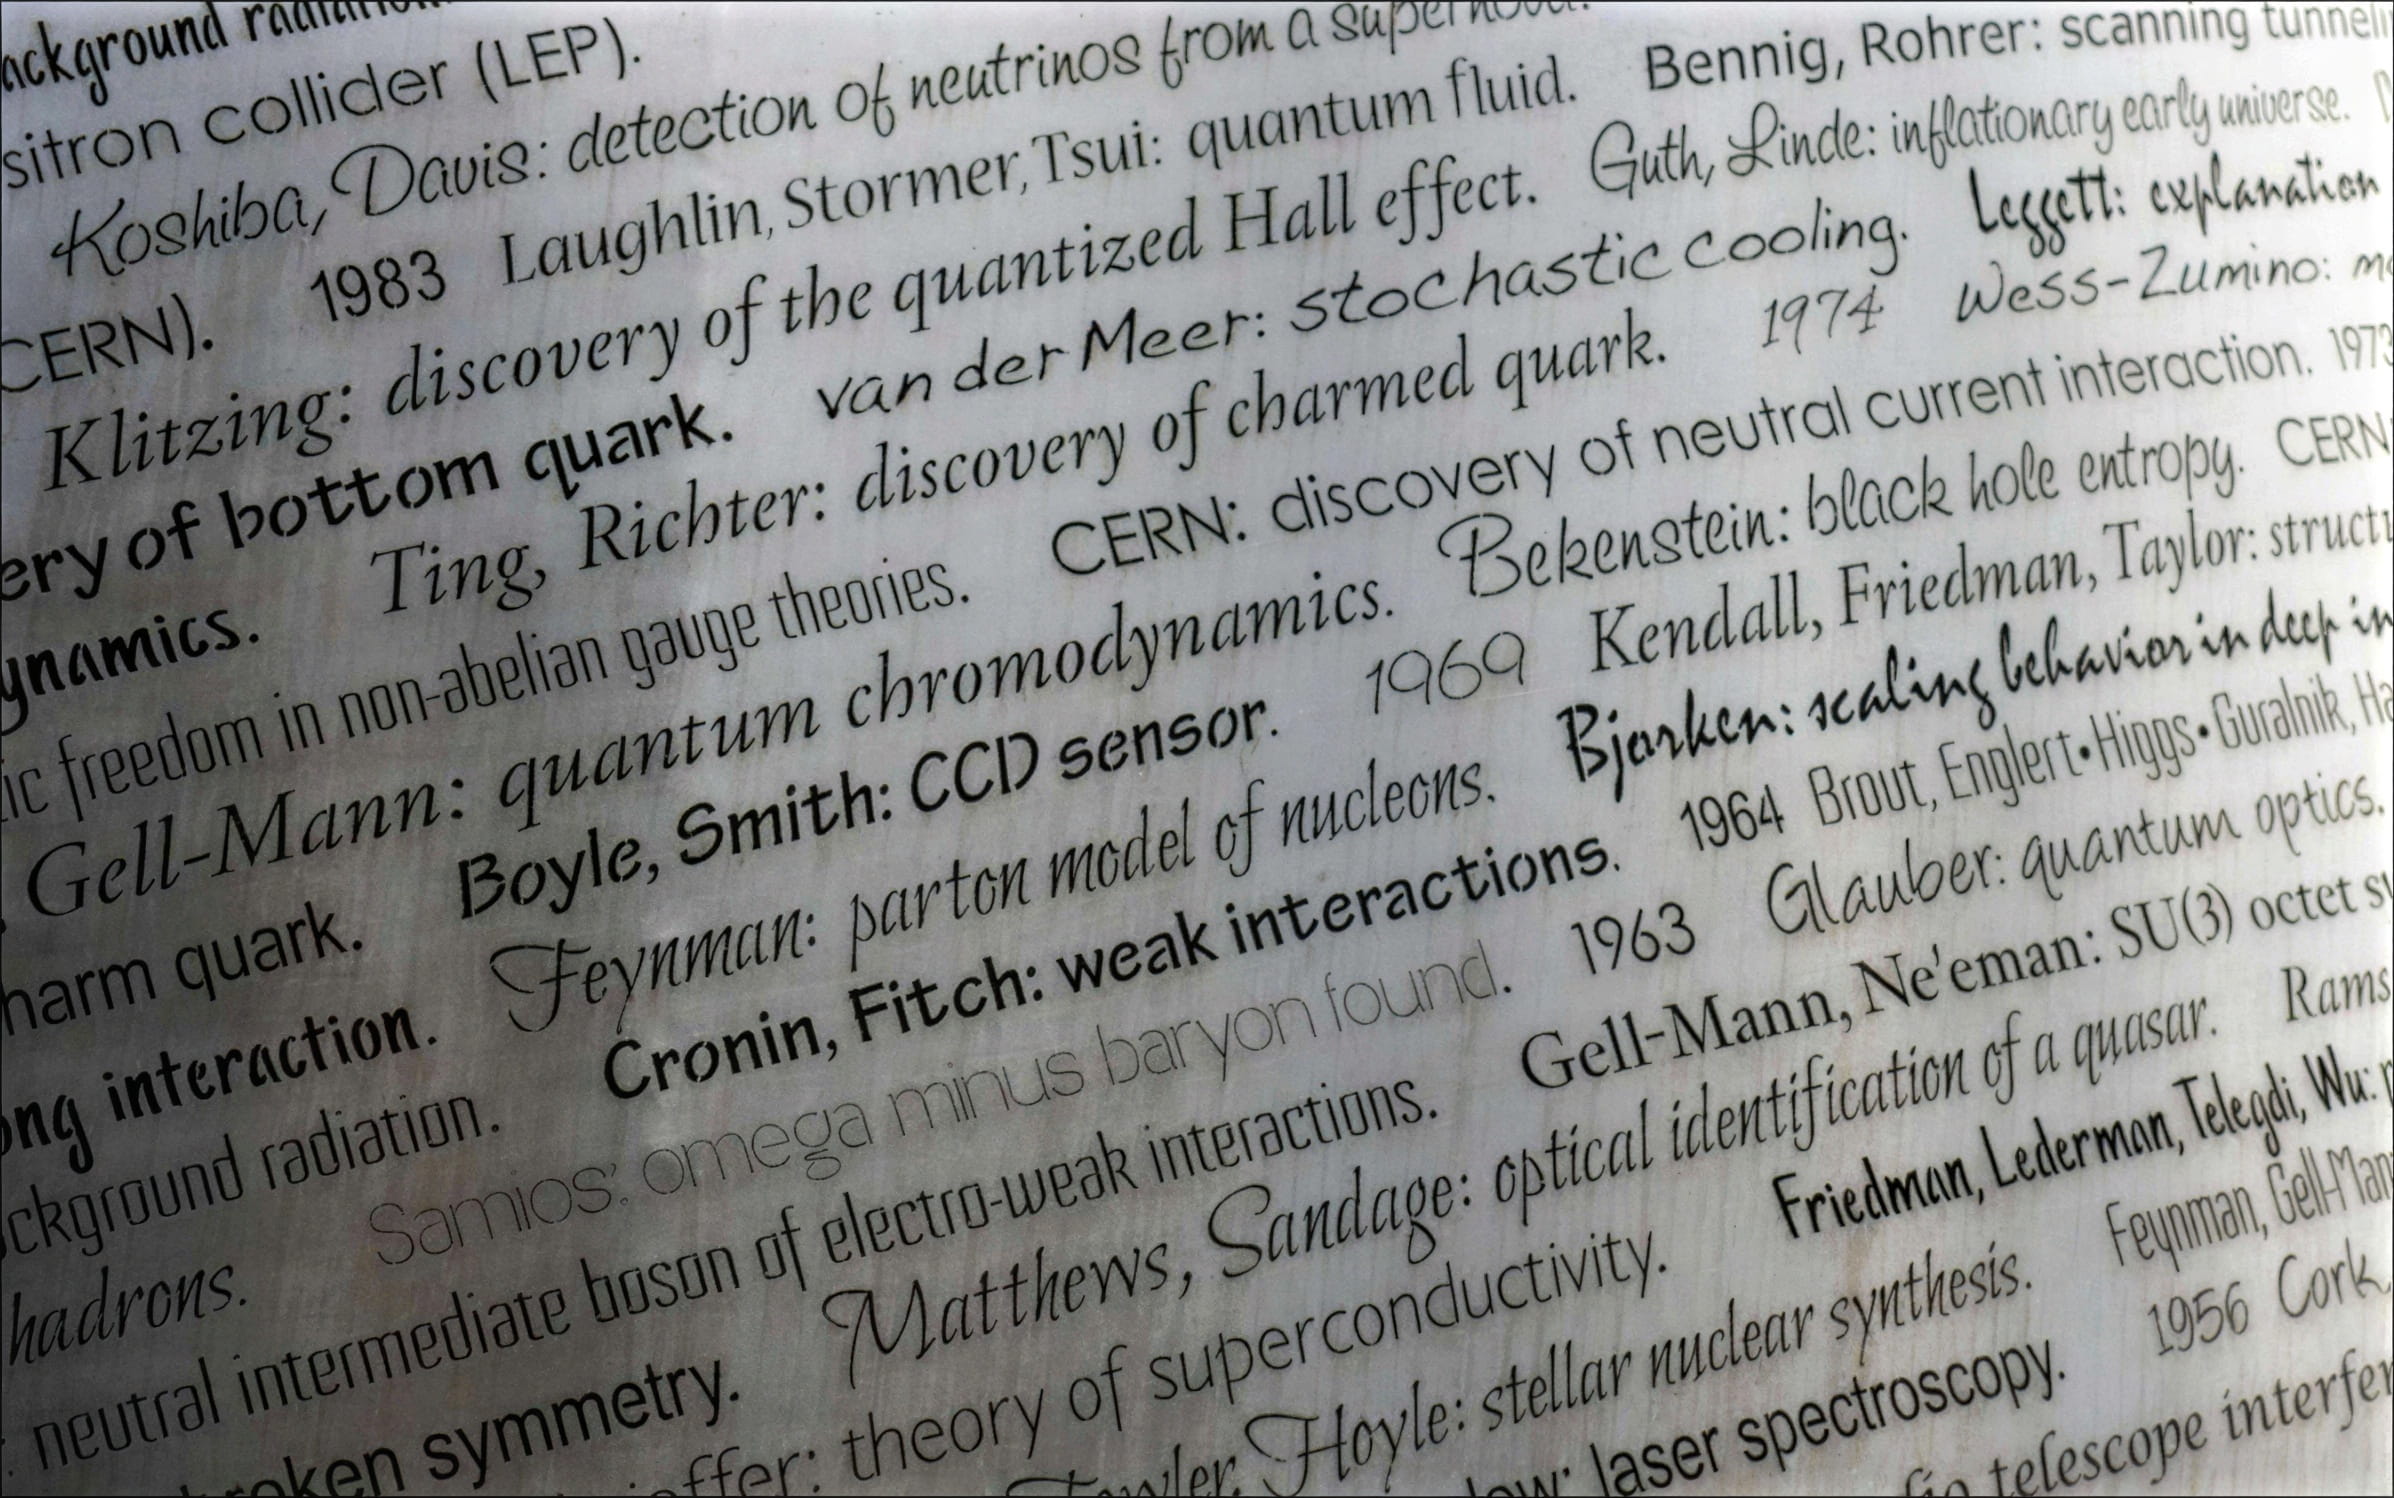 ackground radiation
sitron collider (LEP).
Koshiba, Davis: detection of neutrinos from a supernova.
CERN). 1983 Laughlin, Stormer, Tsui: quantum fluid. Bennig, Rohrer: scanning tunneli
Klitzing: discovery of the quantized Hall effect. Guth, Linde: inflationary early universe.
ery of bottom quark. van der Meer: stochastic cooling. Leggett: explanation
ynamics. Ting, Richter: discovery of charmed quark. 1974 Wess-Zumino: m
ic freedom in non-abelian gauge theories. CERN: discovery of neutral current interaction. 1973
Gell-Mann: quantum chromodynamics. Bekenstein: black hole entropy. CERN
harm quark. Boyle, Smith: CCD sensor. 1969 Kendall, Friedman, Taylor: struct
ong interaction. Feynman: parton model of nucleons. Bjorken: scaling behavior in deep in
ckground radiation. Cronin, Fitch: weak interactions. 1964 Brout, Englert•Higgs•Guralnik, Ha
hadrons. Samios: omega minus baryon found. 1963 Glauber: quantum optics.
neutral intermediate boson of electro-weak interactions. Gell-Mann, Ne'eman: SU(3) octet sy
roken symmetry. Matthews, Sandage: optical identification of a quasar. Rams
effer: theory of superconductivity. Friedman, Lederman, Telegdi, Wu:
Fowler, Hoyle: stellar nuclear synthesis. Feynman, Gell-Man
low: laser spectroscopy. 1956 Cork
telescope interfer